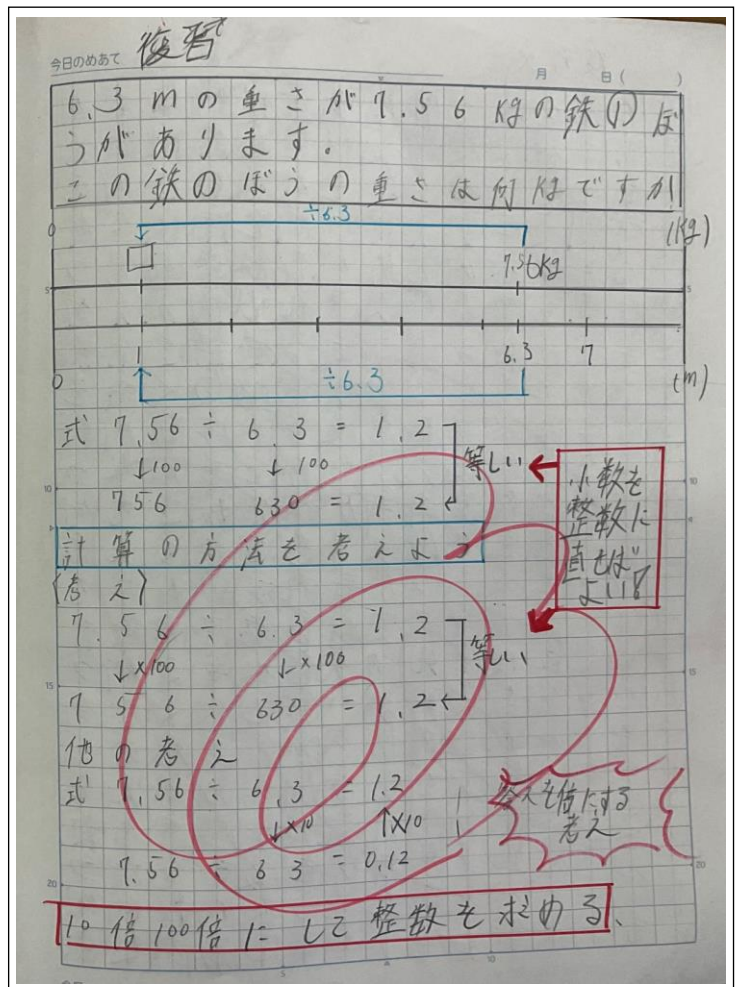 今日のめあて 復習
月 日( )
6.3mの重さが7.56kgの鉄のぼ
うがあります。
この鉄のぼうの重さは何kgですか
÷6.3
0 (kg)
□ 7.56kg
5 5
1 6.3 7
0 ÷6.3 (m)
式 7.56÷6.3=1.2
↓100 ↓100 等しい
10 10
756 630=1.2
小数を
整数に
直せば
よい!
計算の方法を考えよう
(考え)
7.56÷6.3=1.2
↓×100 ↓×100 等しい
15 15
756÷630=1.2
他の考え
式 7.56÷6.3=1.2
↓×10 ↑×10
7.56÷63=0.12
答えを倍にする
考え
20 20
10倍100倍にして整数を求める、
5 10